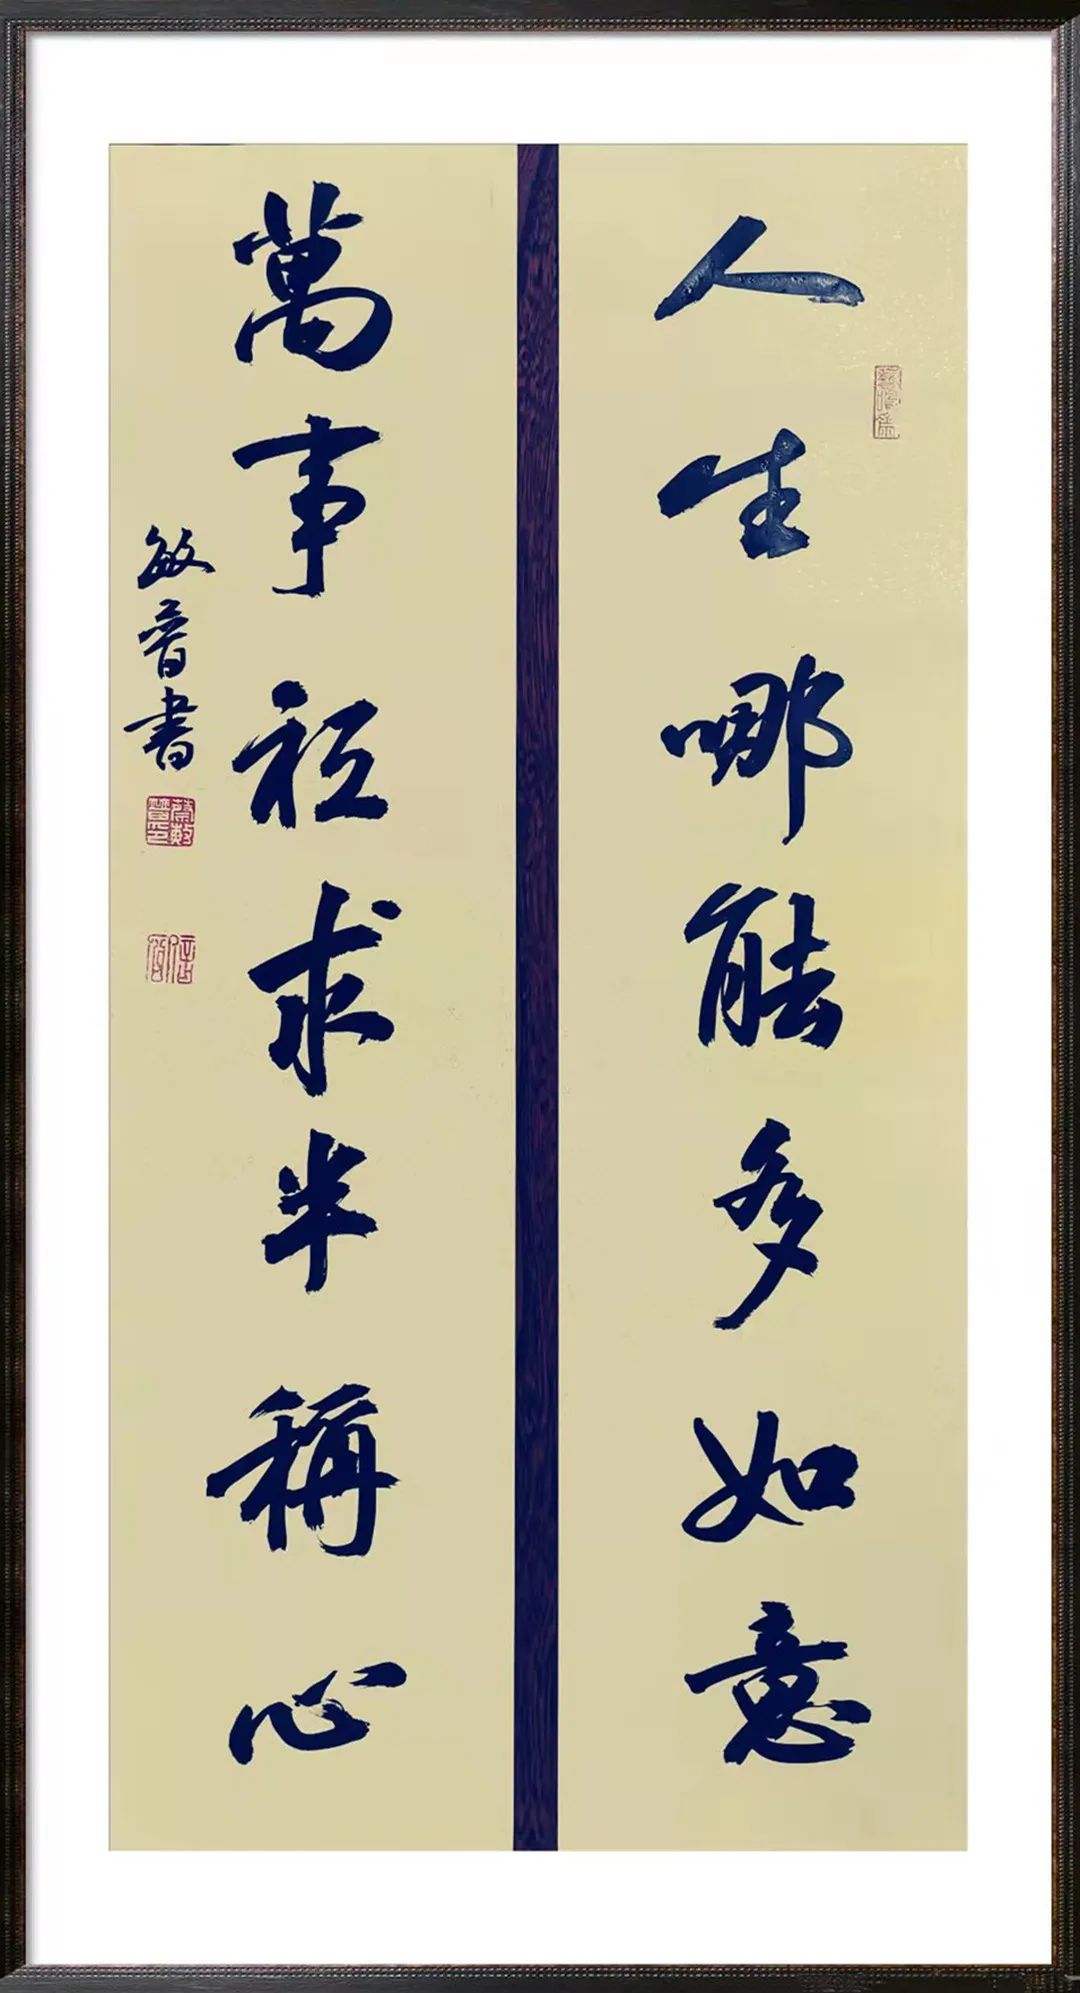 人生哪能多如意
萬事祗求半稱心
敏晉書